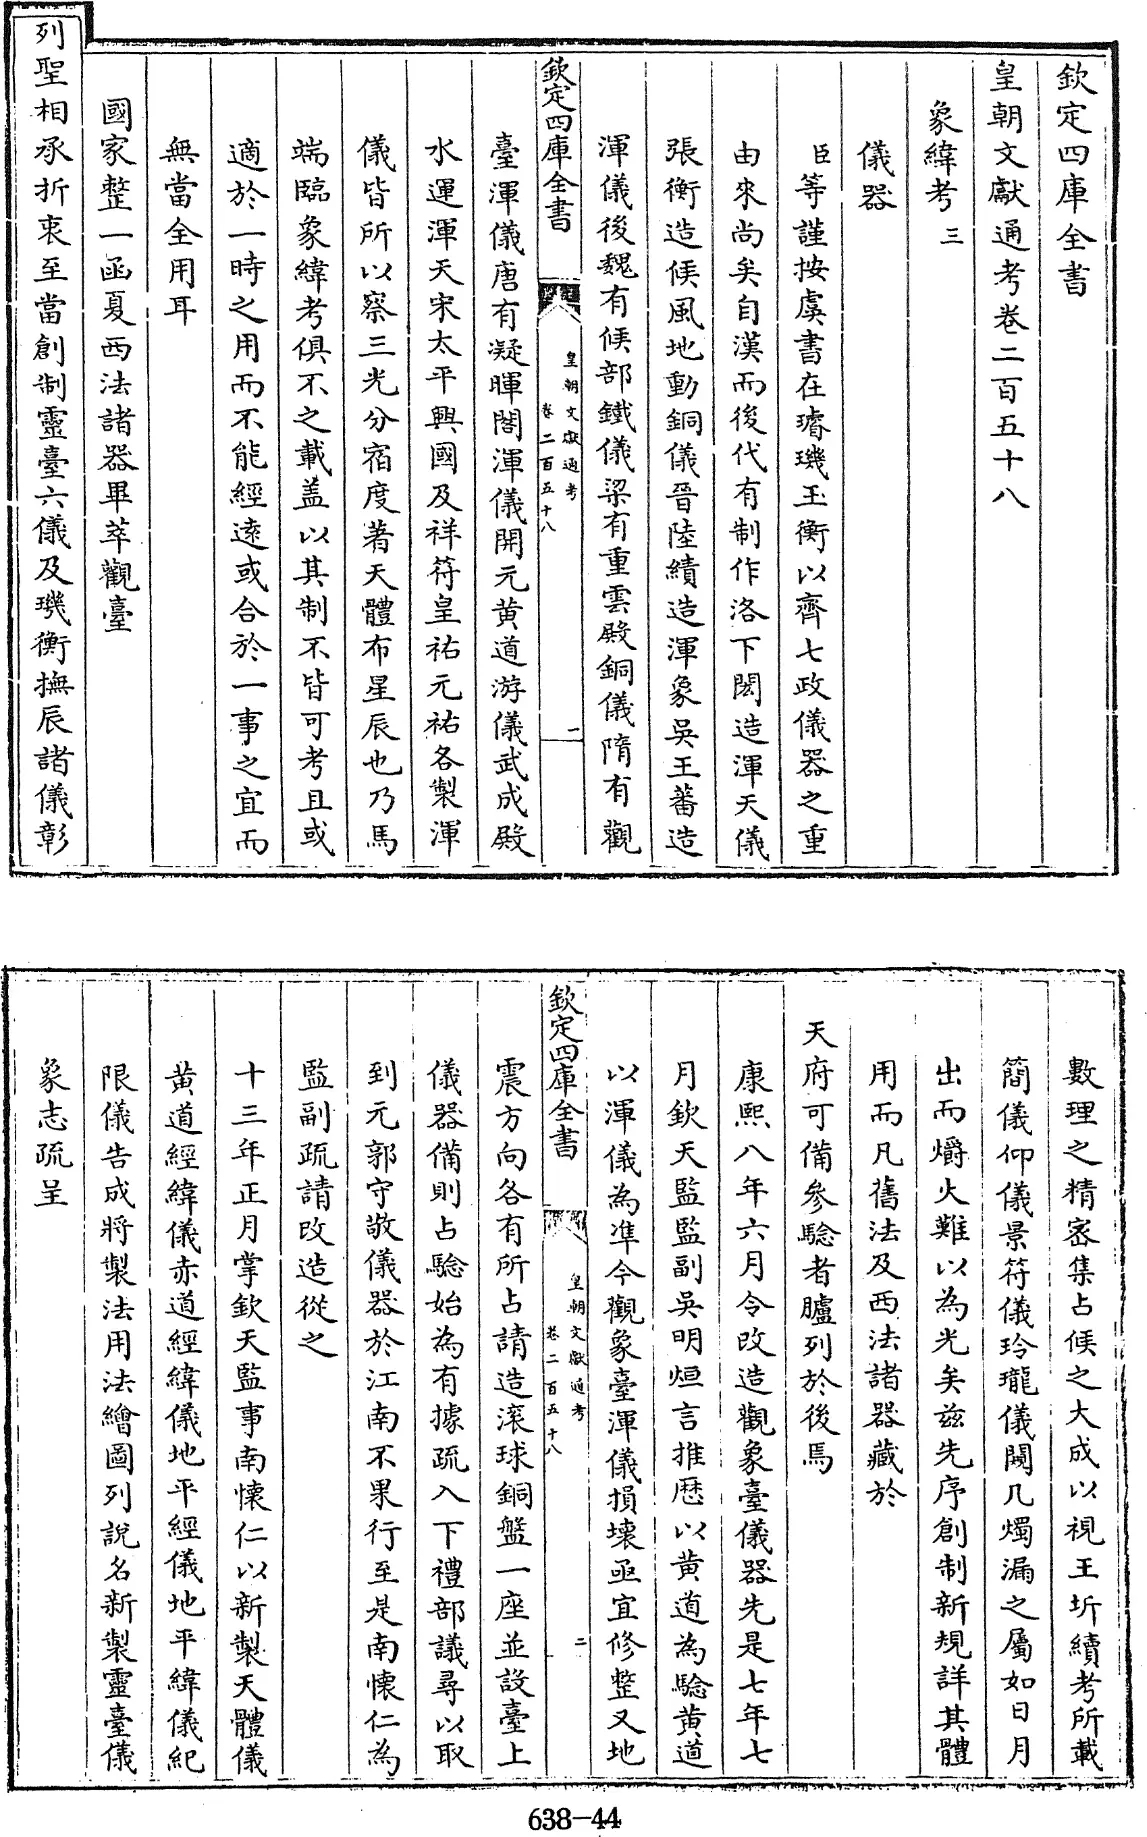 欽定四庫全書
皇朝文獻通考卷二百五十八
象緯考三
儀器
臣等謹按虞書在璿璣玉衡以齊七政儀器之重
由來尚矣自漢而後代有制作洛下閎造渾天儀
張衡造候風地動銅儀晉陸績造渾象吳王蕃造
渾儀後魏有候部鐵儀梁有重雲殿銅儀隋有觀
欽定四庫全書
皇朝文獻通考
卷二百五十八
一
臺渾儀唐有凝暉閣渾儀開元黃道游儀武成殿
水運渾天宋太平興國及祥符皇祐元祐各製渾
儀皆所以察三光分宿度著天體布星辰也乃馬
端臨象緯考俱不之載盖以其制不皆可考且或
適於一時之用而不能經逺或合於一事之宜而
無當全用耳
國家整一函夏西法諸器畢萃觀臺
列聖相承折衷至當創制靈臺六儀及璣衡撫辰諸儀彰
數理之精宻集占候之大成以視王圻續考所載
簡儀仰儀景符儀玲瓏儀闚几燭漏之屬如日月
出而爝火難以為光矣兹先序創制新規詳其體
用而凡舊法及西法諸器藏於
天府可備參驗者臚列於後焉
康熙八年六月令改造觀象臺儀器先是七年七
月欽天監監副吳明烜言推厯以黃道為驗黃道
以渾儀為凖今觀象臺渾儀損壞亟宜修整又地
欽定四庫全書
皇朝文獻通考
卷二百五十八
二
震方向各有所占請造滚球銅盤一座並設臺上
儀器備則占驗始為有據疏入下禮部議尋以取
到元郭守敬儀器於江南不果行至是南懐仁為
監副疏請改造從之
十三年正月掌欽天監事南懐仁以新製天體儀
黃道經緯儀赤道經緯儀地平經儀地平緯儀紀
限儀告成將製法用法繪圖列說名新製靈臺儀
象志疏呈
638-44